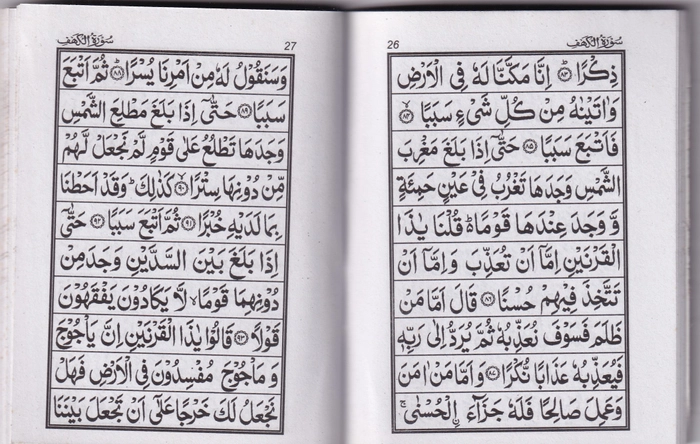 سورة الكهف
26
ذِكْرًا ﴿٨٣﴾ اِنَّا مَكَّنَّا لَهٗ فِی الْاَرْضِ
وَاٰتَیْنٰهُ مِنْ كُلِّ شَیْءٍ سَبَبًا ﴿٨٤﴾
فَاَتْبَعَ سَبَبًا ﴿٨٥﴾ حَتّٰۤی اِذَا بَلَغَ مَغْرِبَ
الشَّمْسِ وَجَدَهَا تَغْرُبُ فِیْ عَیْنٍ حَمِئَةٍ
وَّ وَجَدَ عِنْدَهَا قَوْمًا ؕ قُلْنَا یٰذَا
الْقَرْنَیْنِ اِمَّاۤ اَنْ تُعَذِّبَ وَ اِمَّاۤ اَنْ
تَتَّخِذَ فِیْهِمْ حُسْنًا ﴿٨٦﴾ قَالَ اَمَّا مَنْ
ظَلَمَ فَسَوْفَ نُعَذِّبُهٗ ثُمَّ یُرَدُّ اِلٰی رَبِّهٖ
فَیُعَذِّبُهٗ عَذَابًا نُّكْرًا ﴿٨٧﴾ وَ اَمَّا مَنْ اٰمَنَ
وَعَمِلَ صَالِحًا فَلَهٗ جَزَآءَ اۨلْحُسْنٰی ۚ
سورة الكهف
27
وَسَنَقُوْلُ لَهٗ مِنْ اَمْرِنَا یُسْرًا ﴿٨٨﴾ ثُمَّ اَتْبَعَ
سَبَبًا ﴿٨٩﴾ حَتّٰۤی اِذَا بَلَغَ مَطْلِعَ الشَّمْسِ
وَجَدَهَا تَطْلُعُ عَلٰی قَوْمٍ لَّمْ نَجْعَلْ لَّهُمْ
مِّنْ دُوْنِهَا سِتْرًا ﴿٩٠﴾ كَذٰلِكَ ؕ وَقَدْ اَحَطْنَا
بِمَا لَدَیْهِ خُبْرًا ﴿٩١﴾ ثُمَّ اَتْبَعَ سَبَبًا ﴿٩٢﴾ حَتّٰۤی
اِذَا بَلَغَ بَیْنَ السَّدَّیْنِ وَجَدَ مِنْ
دُوْنِهِمَا قَوْمًا ۙ لَّا یَكَادُوْنَ یَفْقَهُوْنَ
قَوْلًا ﴿٩٣﴾ قَالُوْا یٰذَا الْقَرْنَیْنِ اِنَّ یَاْجُوْجَ
وَ مَاْجُوْجَ مُفْسِدُوْنَ فِی الْاَرْضِ فَهَلْ
نَجْعَلُ لَكَ خَرْجًا عَلٰۤی اَنْ تَجْعَلَ بَیْنَنَا